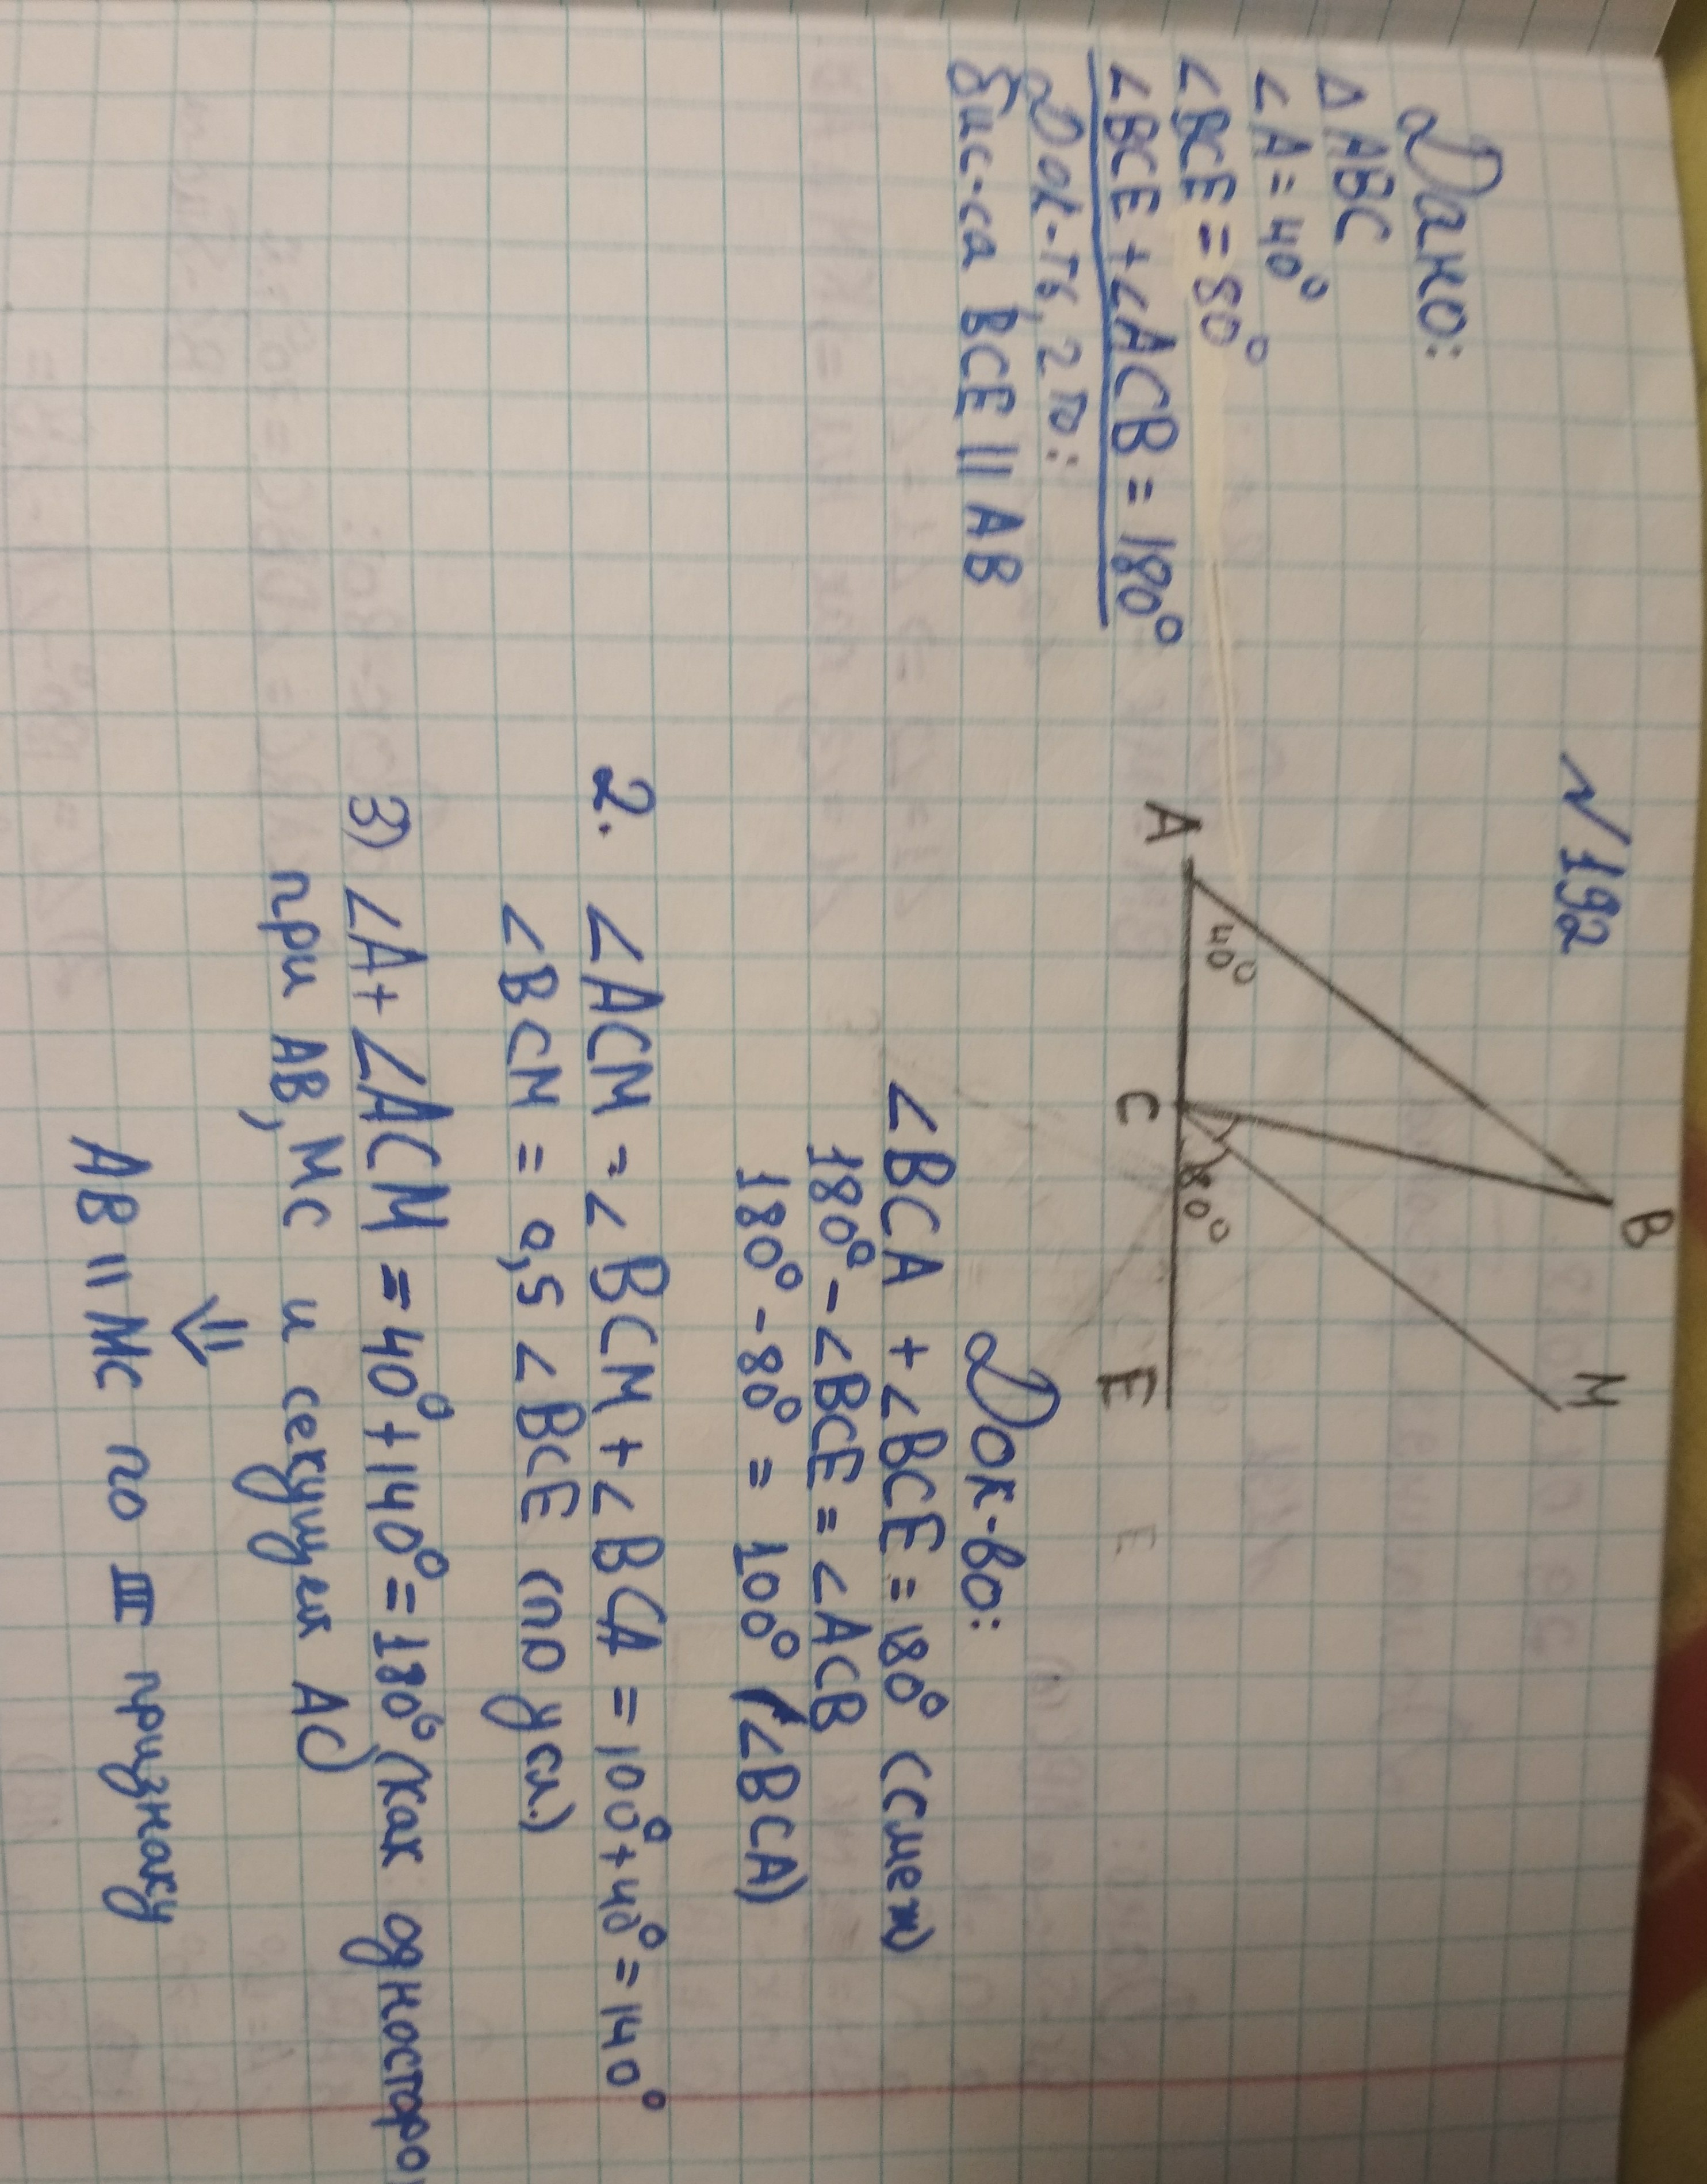 №192
Дано:
∆ ABC
∠A = 40°
∠BCE = 80°
∠BCE + ∠ACB = 180°
Док-ть, что:
бис-са BCE || AB
A
40°
B
C
80°
M
E
Док-во:
∠BCA + ∠BCE = 180° (смеж)
180° - ∠BCE = ∠ACB
180° - 80° = 100° (∠BCA)
2. ∠ACM = ∠BCM + ∠BCA = 100° + 40° = 140°
∠BCM = 0,5 ∠BCE (по усл.)
3) ∠A + ∠ACM = 40° + 140° = 180° (как односторо
при AB, MC и секущей AC)
⇓
AB || MC по III признаку